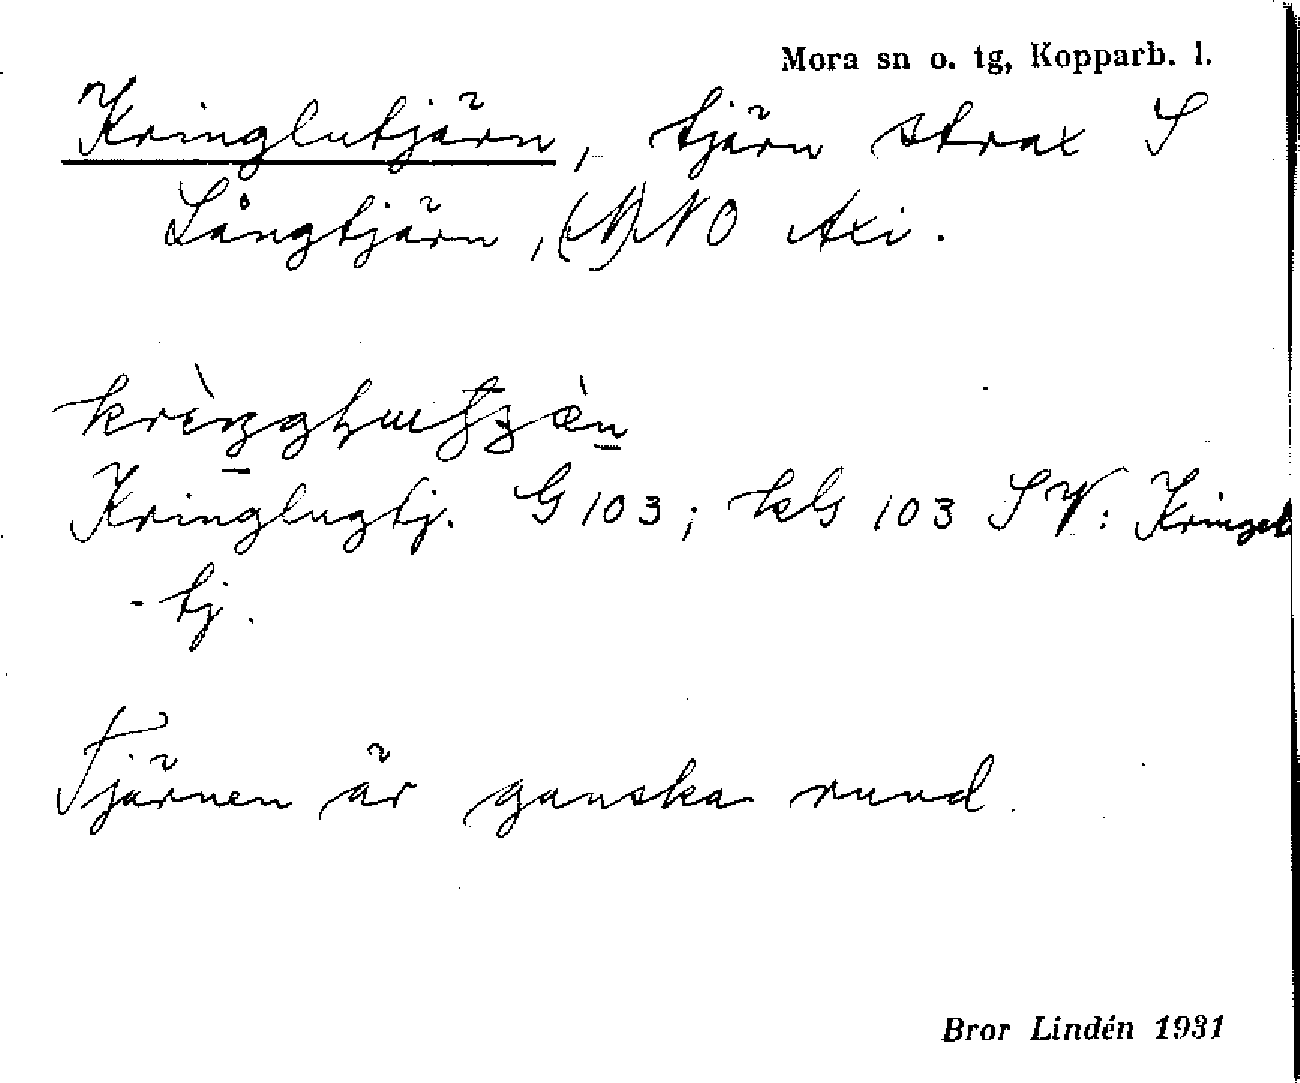 Mora sn o. tg, Kopparb. l.
Kringlutjärn, tjärn strax S
Långtjärn, (N)NO Axi.
Kringlugtj. G 103; kG 103 SV: Kringel
-tj.
Tjärnen är ganska rund.
Bror Lindén 1931